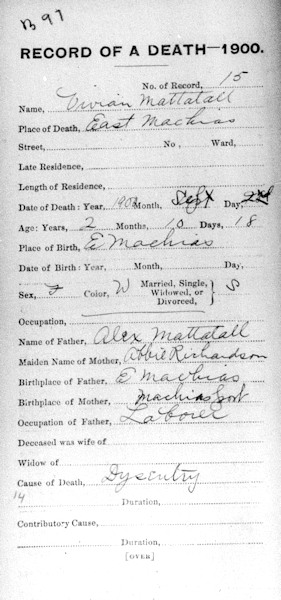 B97
RECORD OF A DEATH—1900.
No. of Record, 15
Name, Vivian Mattatall
Place of Death, East Machias
Street, No, Ward,
Late Residence,
Length of Residence,
Date of Death: Year, 1902 Month, Sept Day, 2nd
Age: Years, 2 Months, 10 Days, 18
Place of Birth, E Machias
Date of Birth: Year, Month, Day,
Sex, F Color, W Married, Single, Widowed, or Divorced, S
Occupation,
Name of Father, Alex Mattatall
Maiden Name of Mother, Abbie Richardson
Birthplace of Father, E Machias
Birthplace of Mother, Machiasport
Occupation of Father, Laborer
Deceased was wife of
Widow of
Cause of Death, Dysentry
14
Duration,
Contributory Cause,
Duration,
[OVER]